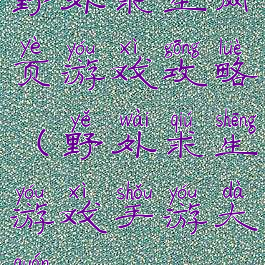 野外求生网
yè yóu xì gōng lüè
页游戏攻略
yě wài qiú shēng
（野外求生
yóu xì shǒu yóu dà
游戏手游大
quán